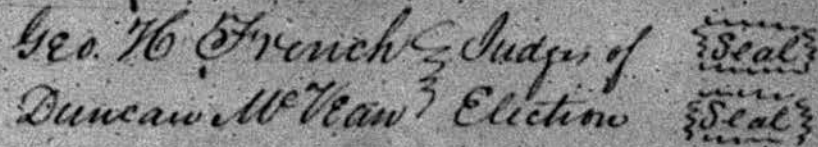 Geo. H French } Judges of Seal
Duncan McVean } Election Seal